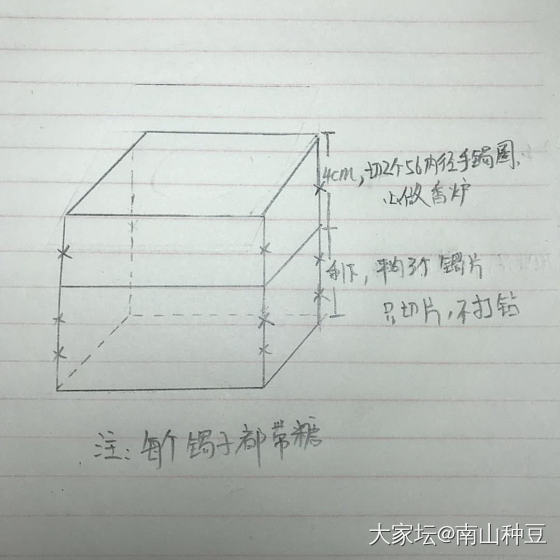 4cm，切2个56内径手镯圈，
心做香炉
剩下，平均3个镯片
只切片，不打钻
注：每个镯子都带糖
大家坛@南山种豆